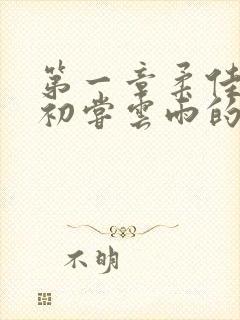 第一章柔佳
初尝云雨的
不明